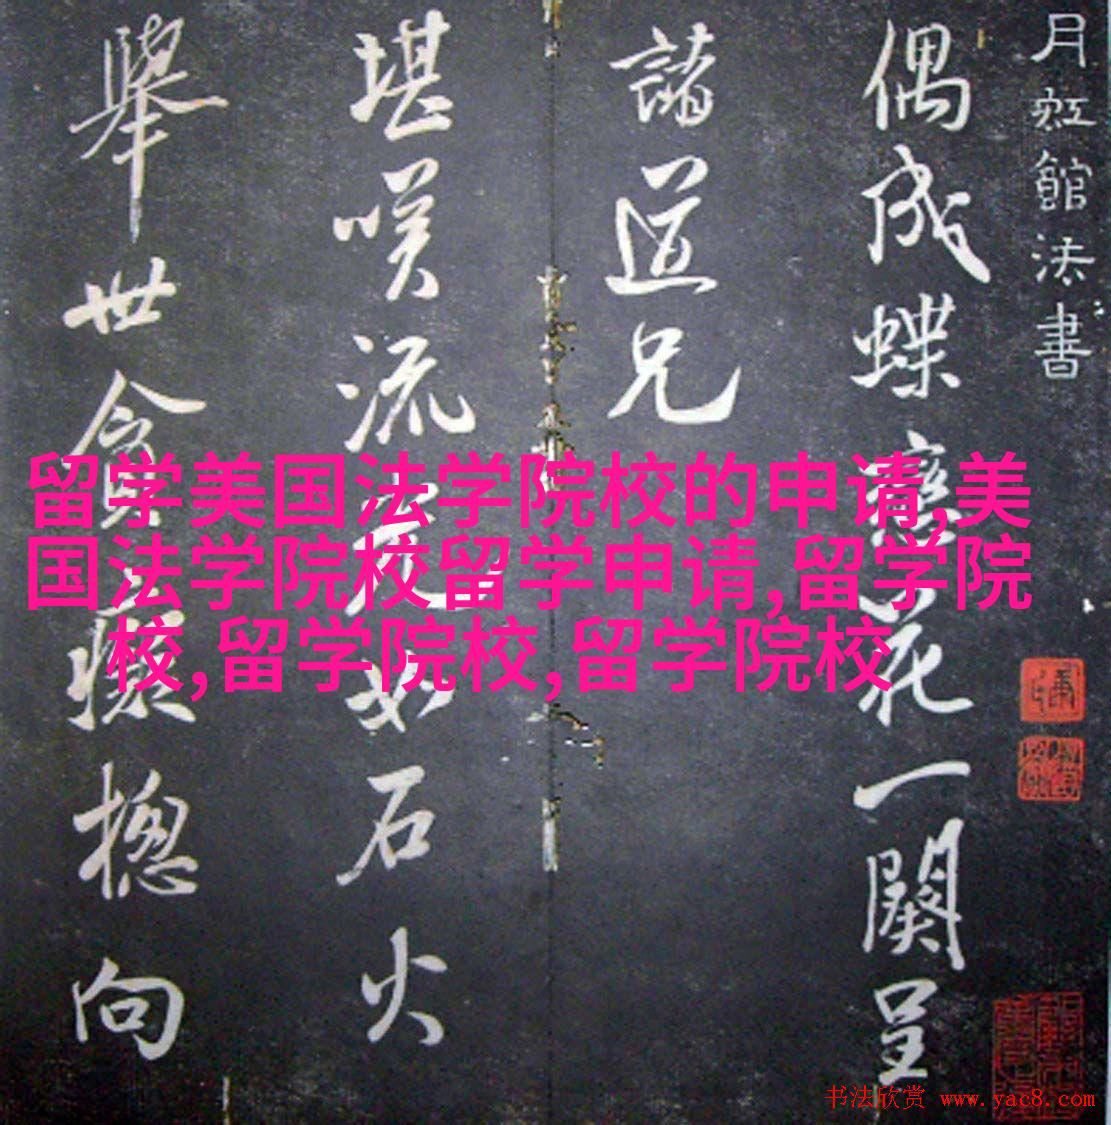 月虹館法書
偶成蝶戀花一闋呈
諸道兄
堪嘆流光如石火
舉世貪癡揔向
留学美国法学院校的申请,美
国法学院校留学申请,留学院
校,留学院校,留学院校
书法欣赏 www.yac8.com